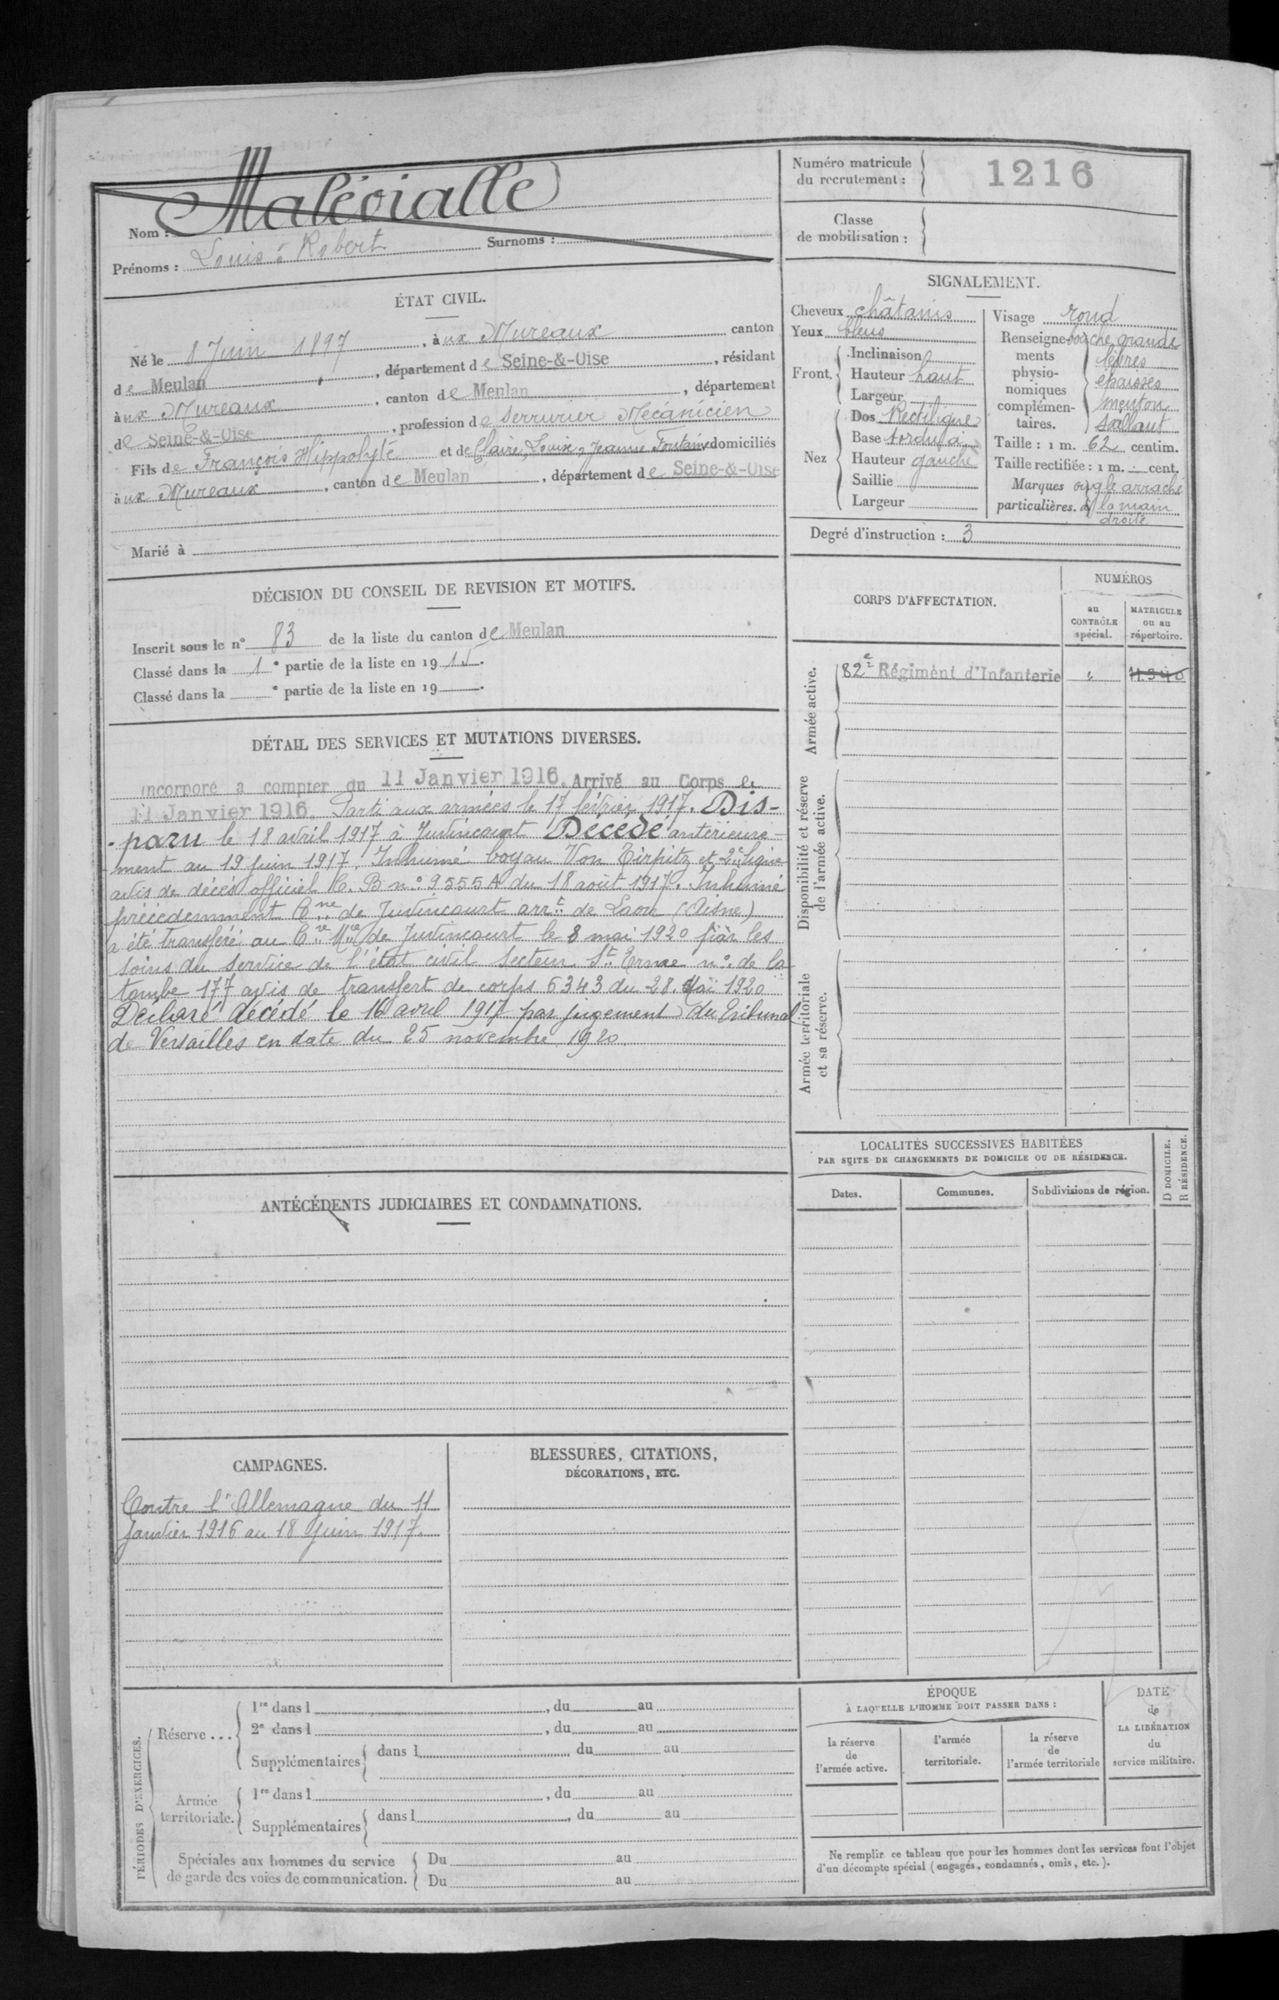 Nom : Malévialle
Surnoms :
Prénoms : Louis Robert
Numéro matricule du recrutement : 1216
Classe de mobilisation :
ÉTAT CIVIL.
Né le 8 Juin 1897, à ux Mureaux canton
de Meulan, département de Seine-&-Oise, résidant
à ux Mureaux, canton de Meulan, département
de Seine-&-Oise, profession de serrurier Mécanicien
Fils de François Hippolyte et de Claire, Louise, Jeanne Fontaine domiciliés
à ux Mureaux, canton de Meulan, département de Seine-&-Oise
Marié à
SIGNALEMENT.
Cheveux châtains
Yeux bleus
Front. Inclinaison
Hauteur haut
Largeur
Nez Dos Rectiligne
Base tordu à
Hauteur gauche
Saillie
Largeur
Visage rond
Renseignements physionomiques complémentaires. bouche grande
lèvres
épaisses
menton
saillant
Taille : 1 m. 62 centim.
Taille rectifiée : 1 m. cent.
Marques particulières. ongle arraché
à la main
droite
Degré d'instruction : 3
DÉCISION DU CONSEIL DE REVISION ET MOTIFS.
Inscrit sous le n° 83 de la liste du canton de Meulan
Classé dans la 1e partie de la liste en 1915.
Classé dans la e partie de la liste en 19 .
CORPS D'AFFECTATION.
NUMÉROS
au CONTRÔLE spécial.
MATRICULE ou au répertoire.
Armée active.
82e Régiment d'Infanterie " 11.340
Disponibilité et réserve de l'armée active.
Armée territoriale et sa réserve.
DÉTAIL DES SERVICES ET MUTATIONS DIVERSES.
Incorporé à compter du 11 Janvier 1916. Arrivé au Corps le
11 Janvier 1916. Parti aux armées le 17 février 1917. Dis-
-paru le 18 avril 1917 à Juvincourt Décédé antérieure-
ment au 19 juin 1917. Inhumé boyau Von Tirpitz et 2e ligne
avis de décès officiel C. B n° 9555 A du 18 août 1917. Inhumé
précédemment Cne de Juvincourt arrt de Laon (Aisne)
a été transféré au Cre Mre de Juvincourt le 8 mai 1920 par les
soins du service de l'état civil secteur St Erme n° de la
tombe 177 avis de transfert de corps 6343 du 28 Mai 1920
Déclaré décédé le 16 avril 1917 par jugement du Tribunal
de Versailles en date du 25 novembre 1920
LOCALITÉS SUCCESSIVES HABITÉES
PAR SUITE DE CHANGEMENTS DE DOMICILE OU DE RÉSIDENCE.
Dates.
Communes.
Subdivisions de région.
D DOMICILE.
R RÉSIDENCE.
ANTÉCÉDENTS JUDICIAIRES ET CONDAMNATIONS.
CAMPAGNES.
Contre l'Allemagne du 11
janvier 1916 au 18 juin 1917.
BLESSURES, CITATIONS,
DÉCORATIONS, ETC.
PÉRIODES D'EXERCICES.
Réserve ... 1re dans l , du au
2e dans l , du au
Supplémentaires dans l , du au
Armée territoriale. 1re dans l , du au
Supplémentaires dans l , du au
Spéciales aux hommes du service
de garde des voies de communication.
Du au
Du au
ÉPOQUE
À LAQUELLE L'HOMME DOIT PASSER DANS :
la réserve de l'armée active.
l'armée territoriale.
la réserve de l'armée territoriale
DATE
de
LA LIBÉRATION
du
service militaire.
Ne remplir ce tableau que pour les hommes dont les services font l'objet
d'un décompte spécial (engagés, condamnés, omis, etc.).